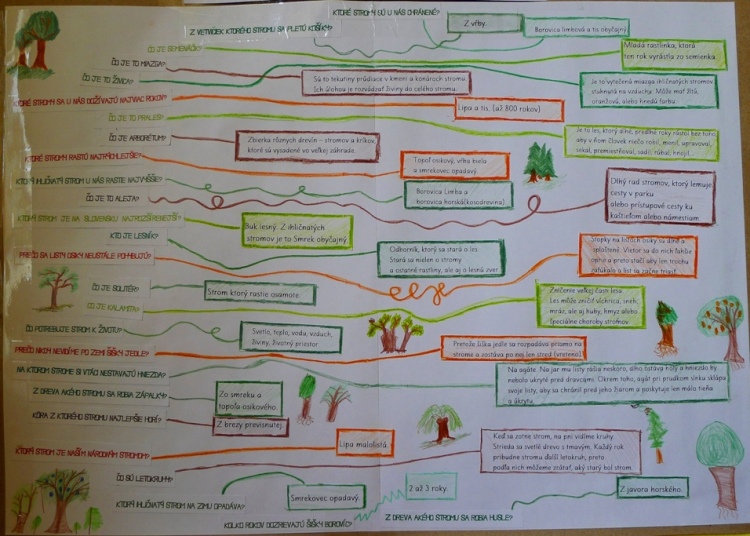 KTORÉ STROMY SÚ U NÁS CHRÁNENÉ?
Z VETVIČIEK KTORÉHO STROMU SA PLETÚ KOŠÍKY?
Z vŕby.
Borovica limbová a tis obyčajný
ČO JE SEMENÁČ?
Mladá rastlinka, ktorá
ten rok vyrástla zo semienka.
ČO JE MIAZGA?
ČO JE ŽIVICA?
Sú to tekutiny prúdiace v kmeni a konároch stromu.
Ich úlohou je rozvádzať živiny do celého stromu.
Je to vytečená miazga ihličnatých stromov
stuhnutá na vzduchu. Môže mať žltú,
oranžovú, alebo hnedú farbu
KTORÉ STROMY SA U NÁS DOŽÍVAJÚ NAJVIAC ROKOV?
Lipa a tis. (až 800 rokov)
ČO JE TO PRALES?
Je to les, ktorý dlhé, stovky rokov rástol bez toho,
aby v ňom človek niečo robil, menil, upravoval,
sekal, premiestňoval, sadil, rúbal, hnojil...
ČO JE ARBORÉTUM?
Zbierka rôznych drevín – stromov a kríkov,
ktoré sú vysadené vo veľkej záhrade.
KTORÉ STROMY RASTÚ NAJRÝCHLEJŠIE?
Topoľ osikový, vŕba biela
a smrekovec opadavý
KTORÝ IHLIČNATÝ STROM U NÁS RASTIE NAJVYŠŠIE?
Borovica Limba a
borovica horská(kosodrevina)
ČO JE TO ALEJA?
Dlhý rad stromov, ktorý lemuje
cesty v parku
alebo prístupové cesty ku
kaštieľom alebo námestiam.
KTORÝ STROM JE NA SLOVENSKU NAJROZŠÍRENEJŠÍ?
Buk lesný. Z ihličnatých
stromov je to Smrek obyčajný
KTO JE LESNÍK?
Odborník, ktorý sa stará o les
Stará sa nielen o stromy
a ostatné rastliny, ale aj o lesnú zver
PREČO SA LISTY OSIKY NEUSTÁLE POHYBUJÚ?
Stopky na listoch osiky sú dlhé a
sploštené. Vietor sa do nich ľahšie
oprie a preto stačí aby len trochu
zafúkalo a list sa začne triasť.
ČO JE SOLITÉR?
Strom ktorý rastie osamote.
ČO JE KALAMITA?
Zničenie veľkej časti lesa.
Les môže zničiť víchrica, sneh,
mráz, ale aj huby, hmyz alebo
špeciálne choroby stromov
ČO POTREBUJE STROM K ŽIVOTU?
Svetlo, teplo, voda, vzduch,
živiny, životný priestor
PREČO NIKDY NEVIDÍME PO ZEMI ŠIŠKY JEDLE?
Pretože šiška jedle sa rozpadáva priamo na
strome a zostáva po nej len stred (vreteno).
NA KTOROM STROME SI VTÁCI NESTAVAJÚ HNIEZDA?
Na agáte. Na jar mu listy rašia neskoro, dlho ostáva holý a hniezdo by
nebolo ukryté pred dravcami. Okrem toho, agát pri prudkom slnku sklápa
svoje listy, aby sa chránil pred jeho žiarom a poskytuje len málo tieňa
a úkrytu.
Z DREVA AKÉHO STROMU SA ROBIA ZÁPALKY?
Zo smreku a
topoľa osikového.
KÔRA Z KTORÉHO STROMU NAJLEPŠIE HORÍ?
Z brezy previsnutej.
KTORÝ STROM JE NAŠIM NÁRODNÝM STROMOM?
Lipa malolistá.
Keď sa zotne strom, na pni vidíme kruhy.
Strieda sa svetlé drevo s tmavým. Každý rok
pribudne stromu ďalší letokruh, preto
podľa nich môžeme zrátať, aký starý bol strom.
ČO SÚ LETOKRUHY?
KTORÝ IHLIČNATÝ STROM NA ZIMU OPADÁVA?
Smrekovec opadavý.
2 až 3 roky.
Z javora horského.
KOĽKO ROKOV DOZRIEVAJÚ ŠIŠKY BOROVÍC?
Z DREVA AKÉHO STROMU SA ROBIA HUSLE?